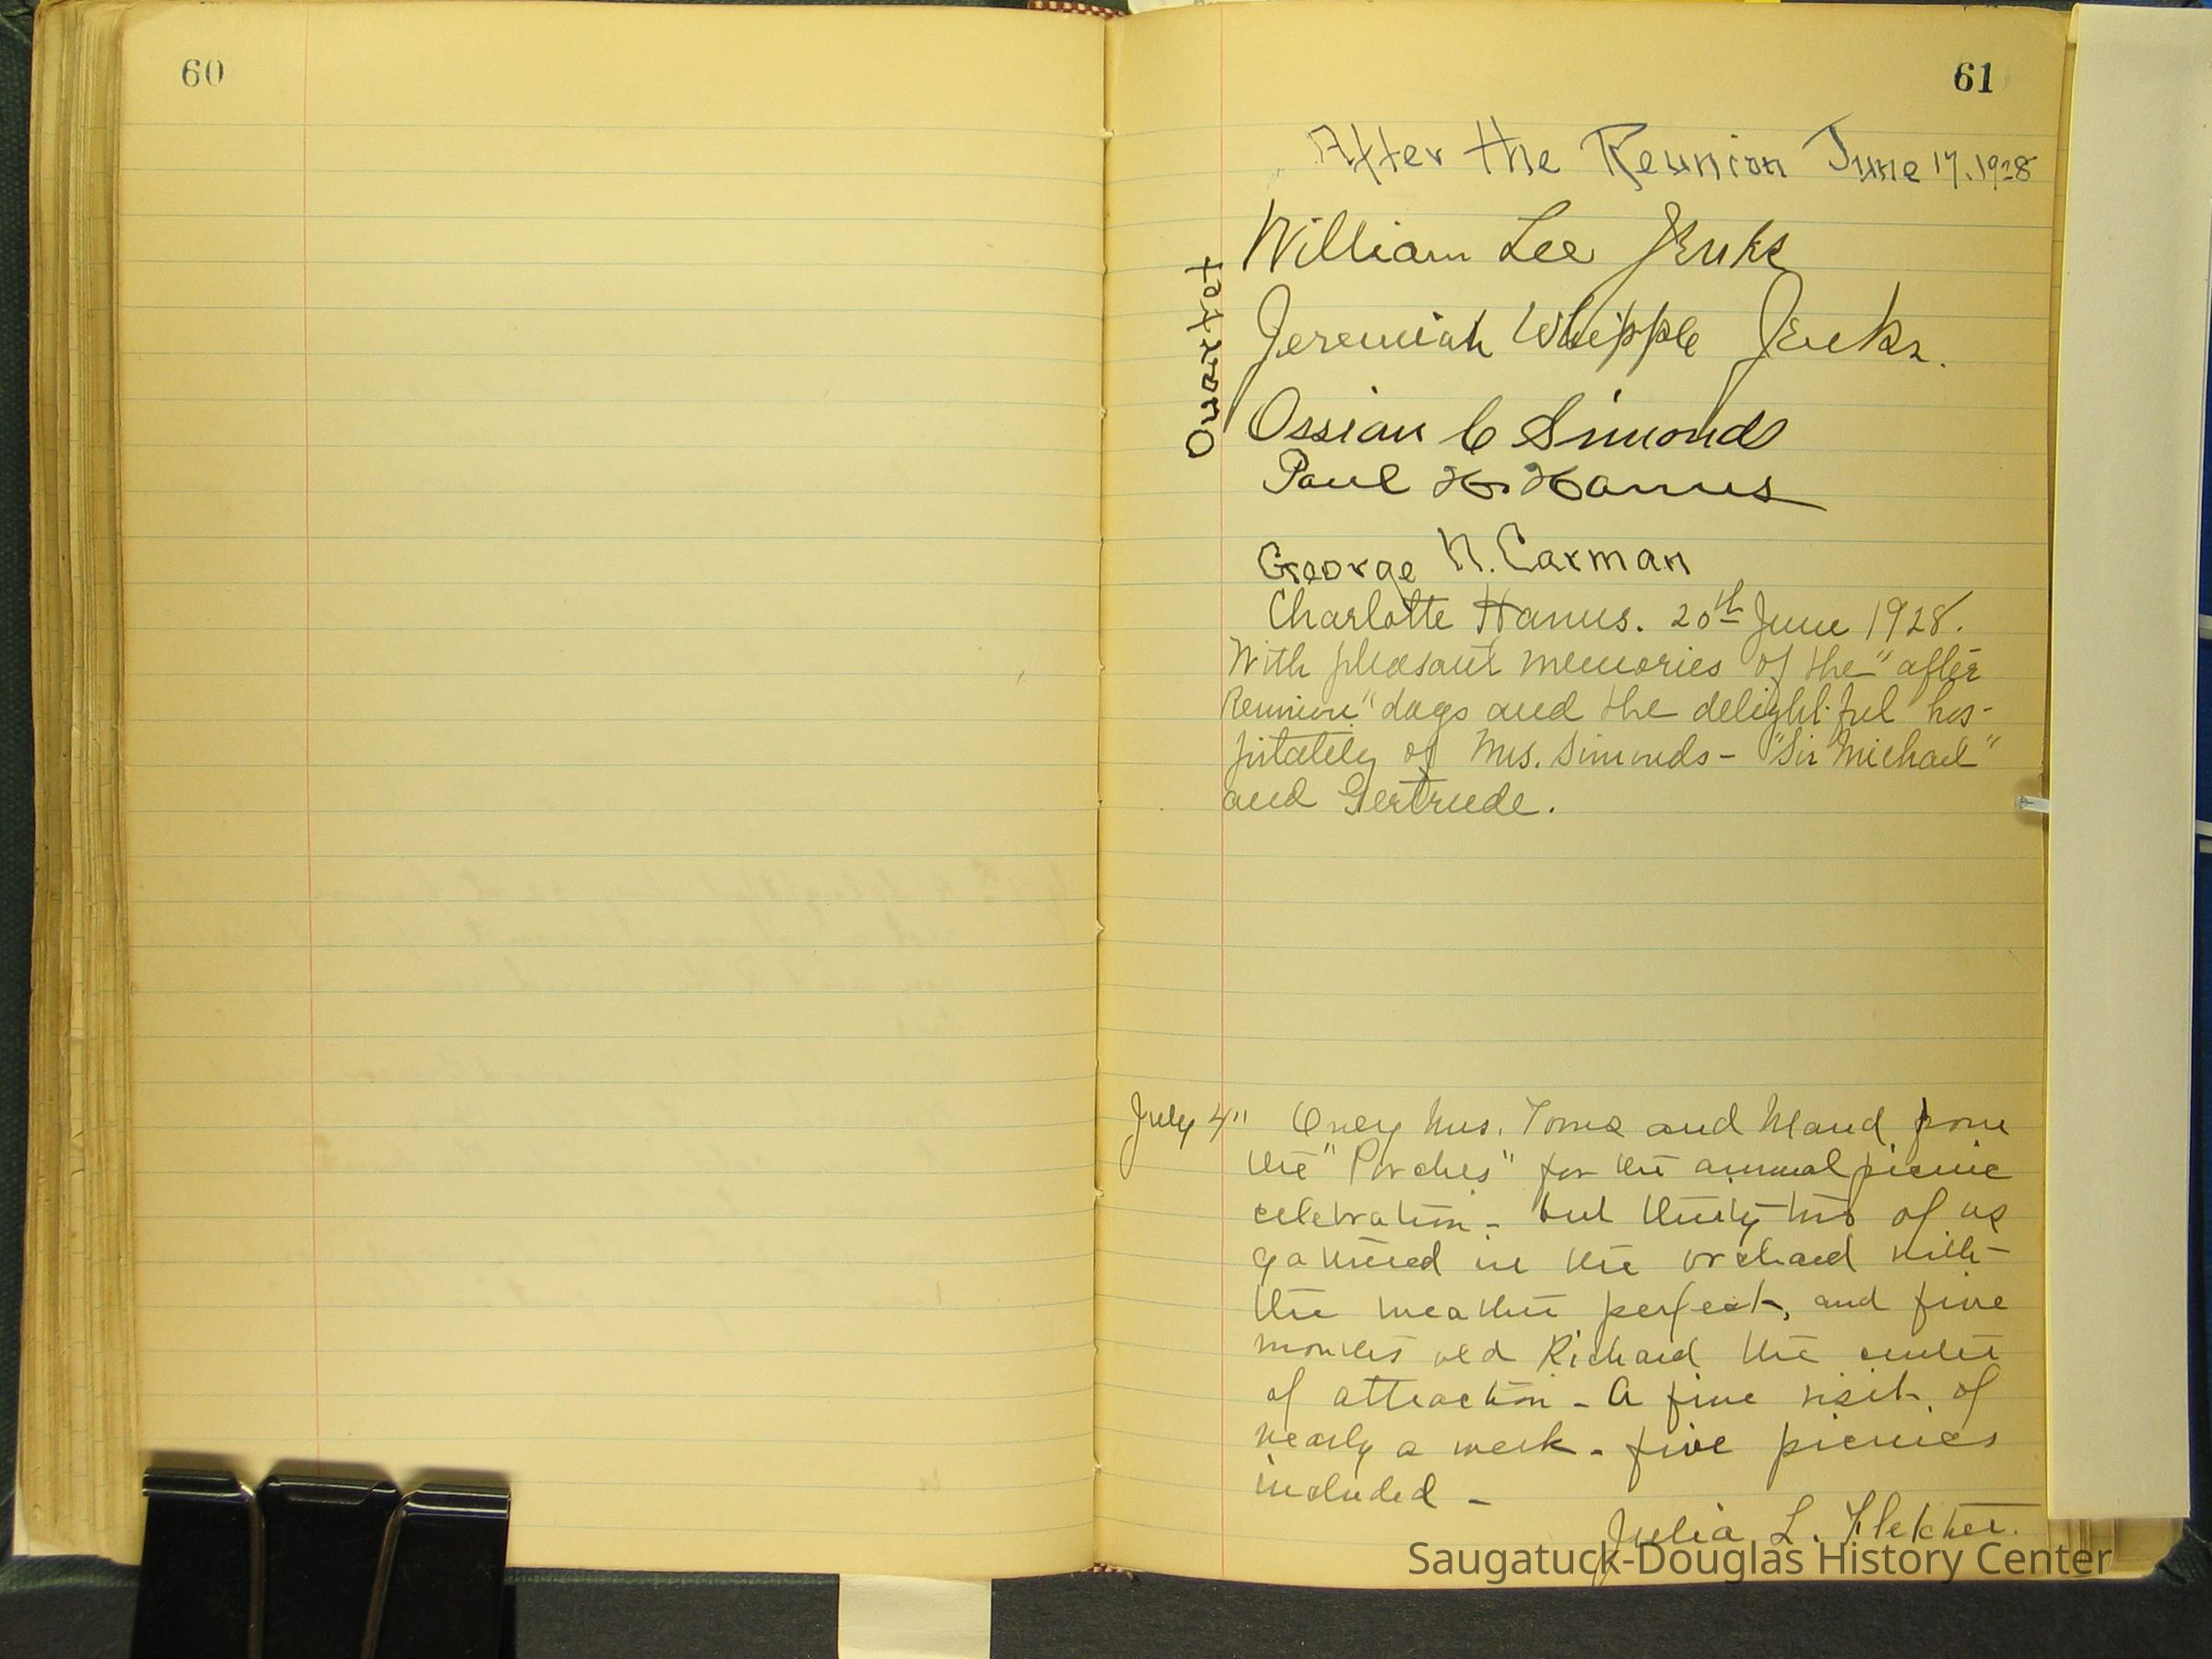 60
61
After the Reunion June 17. 1928
Quartet
William Lee Jenks
Jeremiah Whipple Jenks.
Ossian C Simonds
Paul H. Hanus
George N. Carman
Charlotte Hanus. 20th June 1928.
With pleasant memories of the "after
Reunion" days and the delightful hos-
pitality of Mrs. Simonds - "Sir Michael"
and Gertrude.
July 4" Only Mrs. Toms and Maud from
the "Porches" for the annual picnic
celebration - but thirty two of us
gathered in the orchard with
the weather perfect, and five
months old Richard the center
of attraction - A fine visit of
nearly a week - five picnics
included -
Julia L. Fletcher.
Saugatuck-Douglas History Center